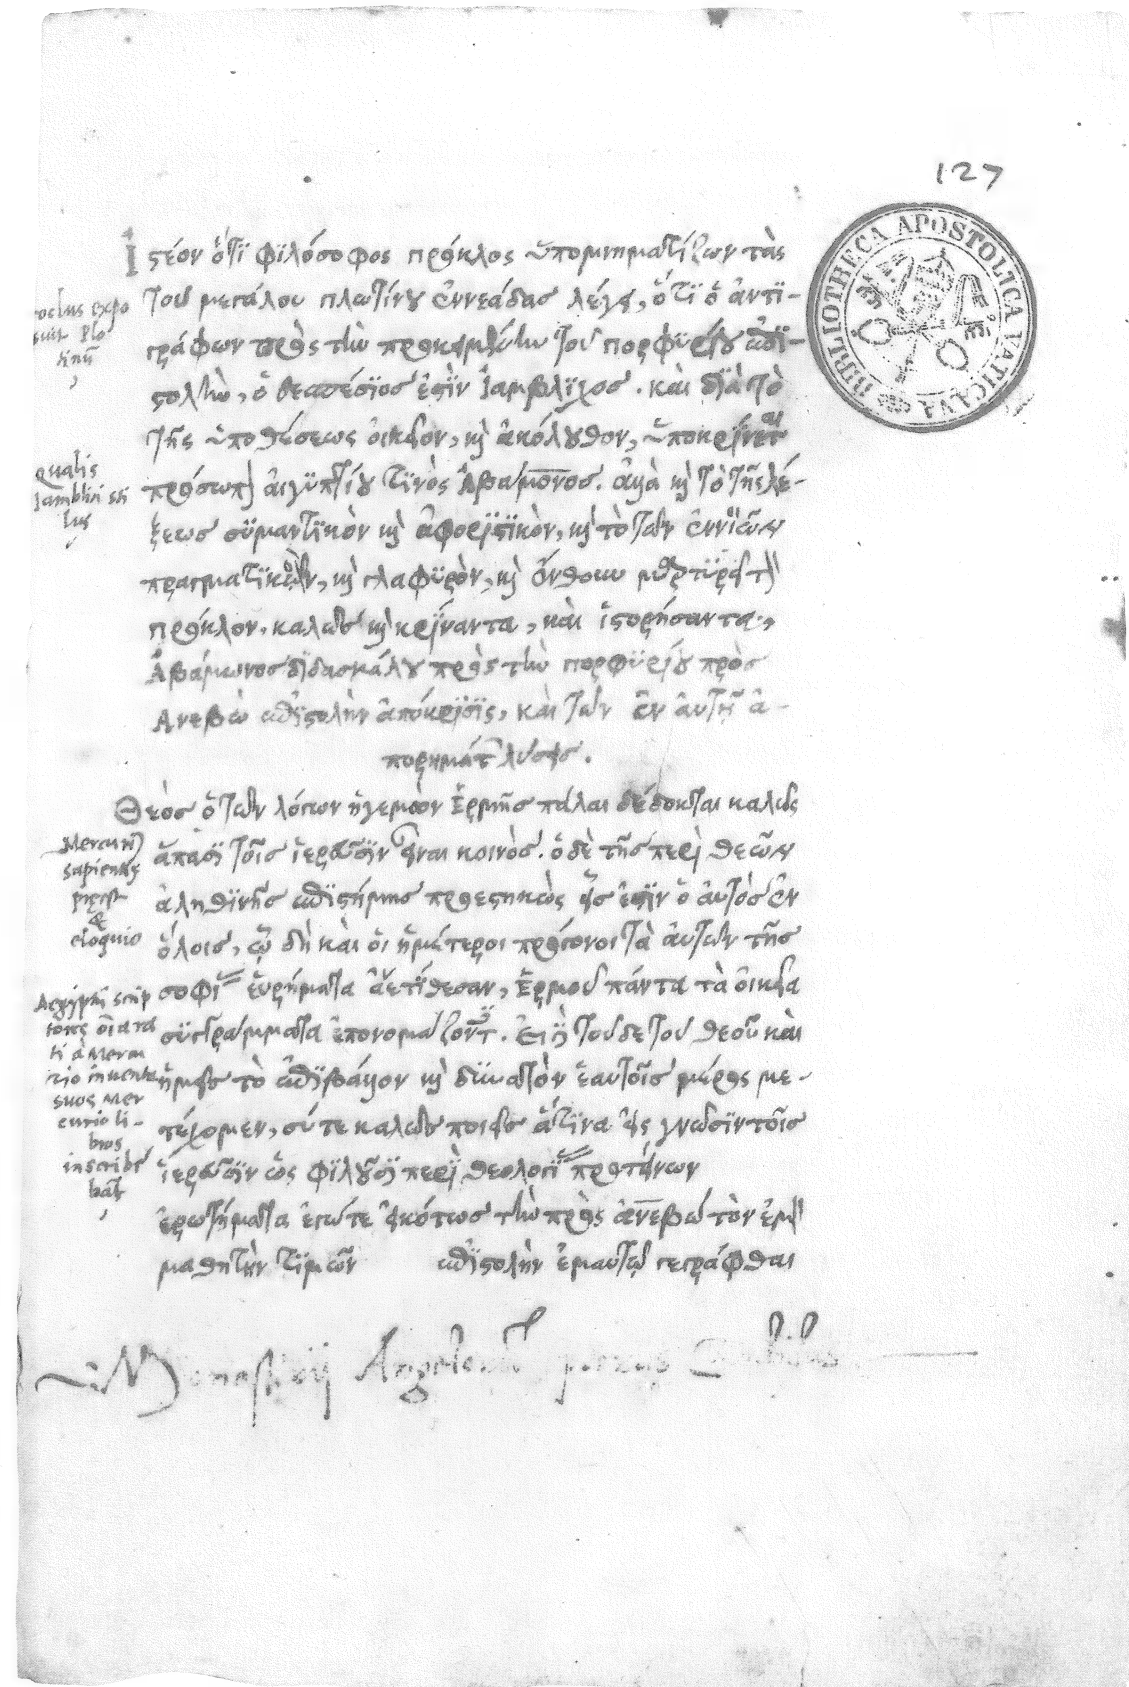 127
BIBLIOTHECA APOSTOLICA VATICANA
Ἰστέον ὅτι φιλόσοφος πρόκλος ὑπομνηματίζων τὰς
τοῦ μεγάλου πλωτίνου ἐννεάδας λέγει, ὅτι ὁ ἀντι-
γράφων πρὸς τὴν προκειμένην τοῦ πορφυρίου ἐπι-
στολὴν, ὁ θεσπέσιος ἐστὶν Ἰάμβλιχος. καὶ διὰ τὸ
τῆς ὑποθέσεως οἰκεῖον, καὶ ἀκόλουθον, ὑποκρίνεται
πρόσωπον αἰγυπτίου τινὸς Ἀβάμωνος. ἀλλὰ καὶ τὸ τῆς λέ-
ξεως καὶ ἀφοριστικὸν, καὶ τὸ τῶν ἐννοιῶν
πραγματικὸν, καὶ γλαφυρὸν, καὶ ἔνθουν μαρτυρεῖ τὸν
πρόκλον, καλῶς καὶ κρίναντα, καὶ ἱστορήσαντα.
Ἀβάμωνος διδασκάλου πρὸς τὴν πορφυρίου πρὸς
Ἀνεβὼ ἐπιστολὴν ἀπόκρισις, καὶ τῶν ἐν αὐτῇ ἀ-
πορημάτων λύσεις.
Θεὸς ὁ τῶν λόγων ἡγεμὼν Ἑρμῆς πάλαι δέδοκται καλῶς
ἅπασι τοῖς ἱερεῦσιν εἶναι κοινός. ὁ δὲ τῆς περὶ θεῶν
ἀληθινῆς ἐπιστήμης προεστηκὼς εἷς ἐστὶν ὁ αὐτὸς ἐν
ὅλοις, ᾧ δὴ καὶ οἱ ἡμέτεροι πρόγονοι τὰ αὐτῶν τῆς
σοφίας εὑρήματα ἀνετίθεσαν, Ἑρμοῦ πάντα τὰ οἰκεῖα
συγγράμματα ἐπονομάζοντες. Εἰ δὲ τοῦδε τοῦ θεοῦ καὶ
ἡμεῖς τὸ ἐπιβάλλον καὶ δυνατὸν ἑαυτοῖς μέρος με-
τέχομεν, σύ τε καλῶς ποιεῖς ἅτινα εἰς γνῶσιν τοῖς
ἱερεῦσιν ὡς φιλοῦσι περὶ θεολογίας προτείνων
ἐρωτήματα ἐγώ τε εἰκότως τὴν πρὸς ἀνεβὼ τὸν ἐμὸν
μαθητὴν ἐπιστολὴν ἐμαυτῷ γεγράφθαι
expo
suit Plo
tinum
Qualis
Iamblici sti
lus
Mercurius
sapientiae
praeest
&
eloquio
Aegyptii scrip
tores
inventa
suos Mer
curio li-
bros
inscribe
bant